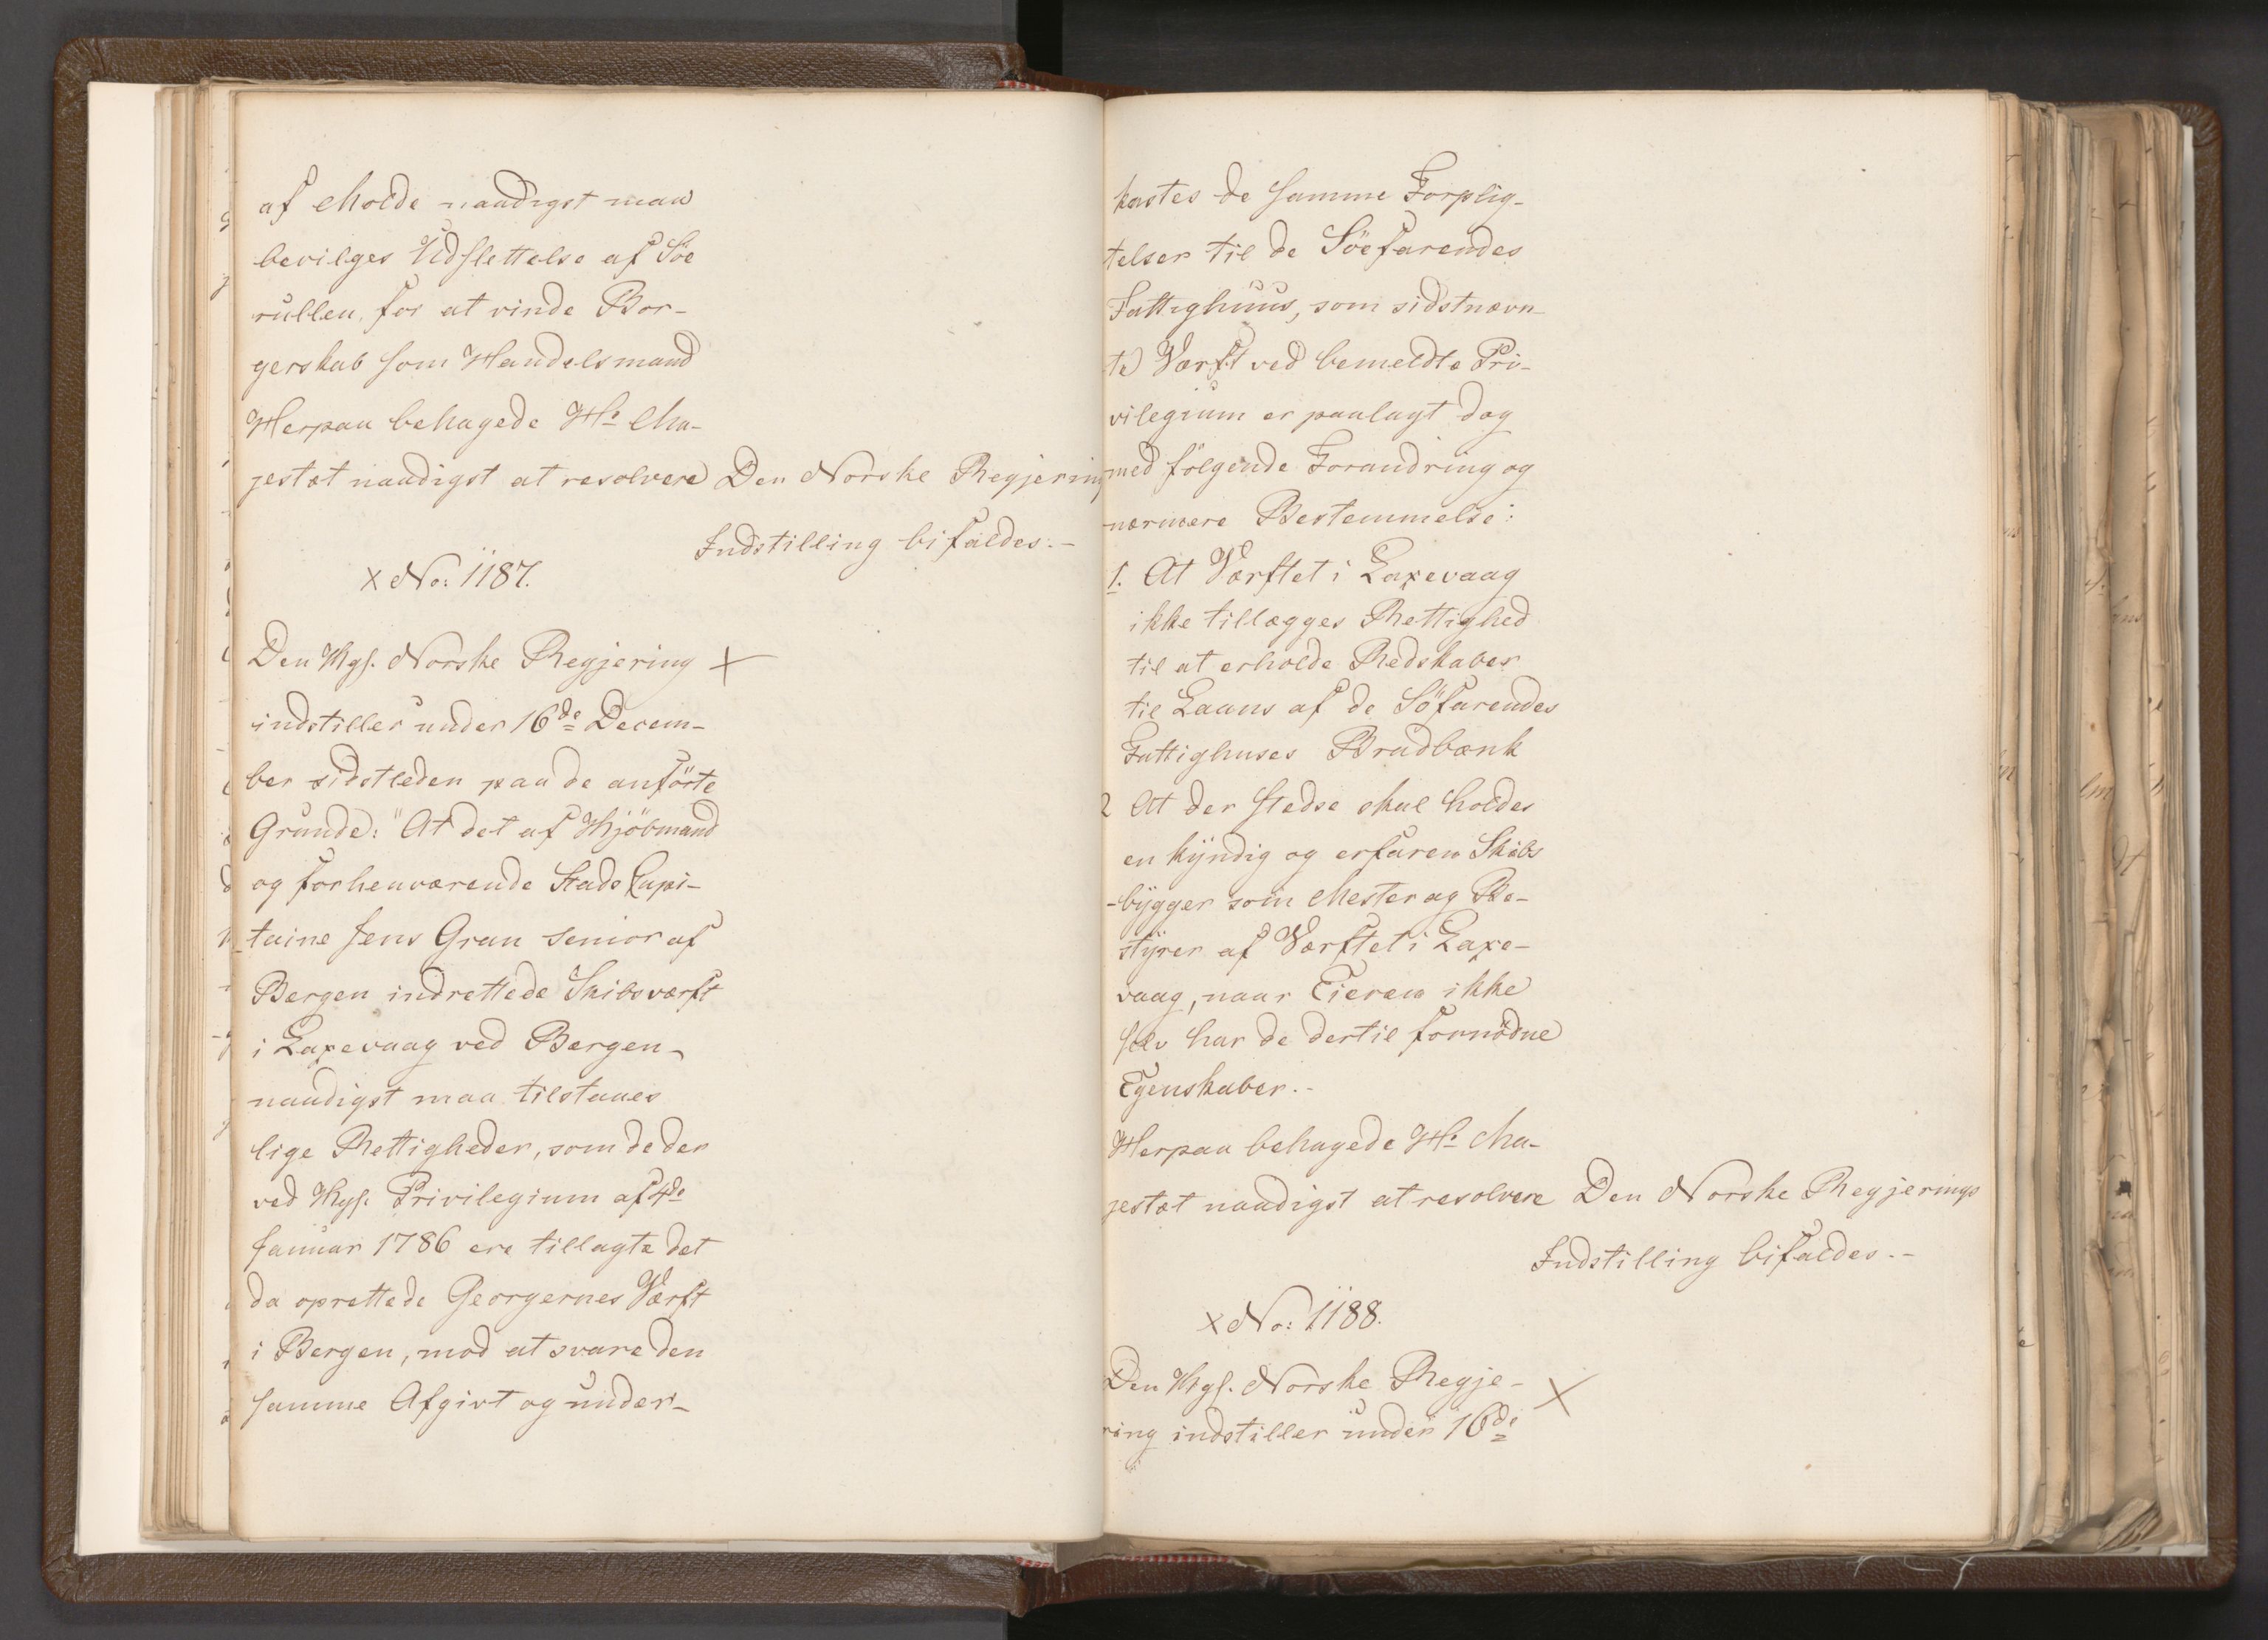 af Molde naadigst maa
bevilges Udslettelse af Søe
rullen, for at vinde Bor-
gerskab som Handelsmand
Herpaa behagede Hs Ma-
jestæt naadigst at resolvere Den Norske Regjering
Indstilling bifaldes.-
x No: 1187.
Den Kgs. Norske Regjering x
indstiller under 16de Decem-
ber sidstleden paa de anförte
Grunde: "At det af Kjöbmand
og forhenværende Stads Capi-
taine Jens Gran Senior af
Bergen indrettede Skibsværft
i Laxevaag ved Bergen
naadigst maa tilstaaes
lige Rettigheder, som de der
ved Kgs. Privilegium af 4de
Januar 1786 ere tillagte det
da oprettede Georgernes Værft
i Bergen, mod at svare den
samme Afgivt og under-
kastes de samme Forplig-
telser til de Söefarendes
Fattighuus, som sidstnævn-
te Værft ved bemeldte Pri-
vilegium er paalagt dog
med følgende Forandring og
nærmere Bestemmelse:
1. At Værftet i Laxevaag
ikke tillægges Rettighed
til at erholde Redskaber
til Laans af de Söfarendes
Fattighuses Bradbænk
2 At der stedse skal holdes
en kyndig og erfaren Skibs
-bygger som Mester og Be-
styrer af Værftet i Laxe-
vaag, naar Eieren ikke
selv har de dertil fornödne
Egenskaber.-
Herpaa behagede Hs Ma-
jestæt naadigst at resolvere Den Norske Regjerings
Indstilling bifaldes.-
x No: 1188.
Den Kgs. Norske Regje- x
ring indstiller under 16de